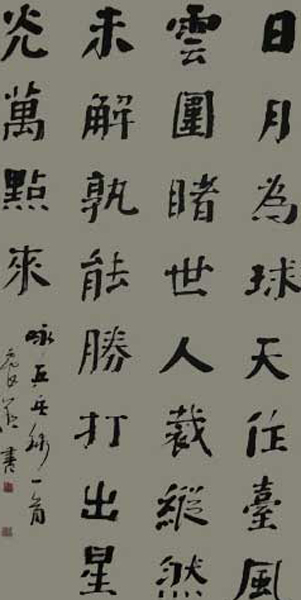 日月為球天作臺風
雲圍睹世人裁縱然
未解孰能勝打出星
光萬點來
咏乒乓球一首
書